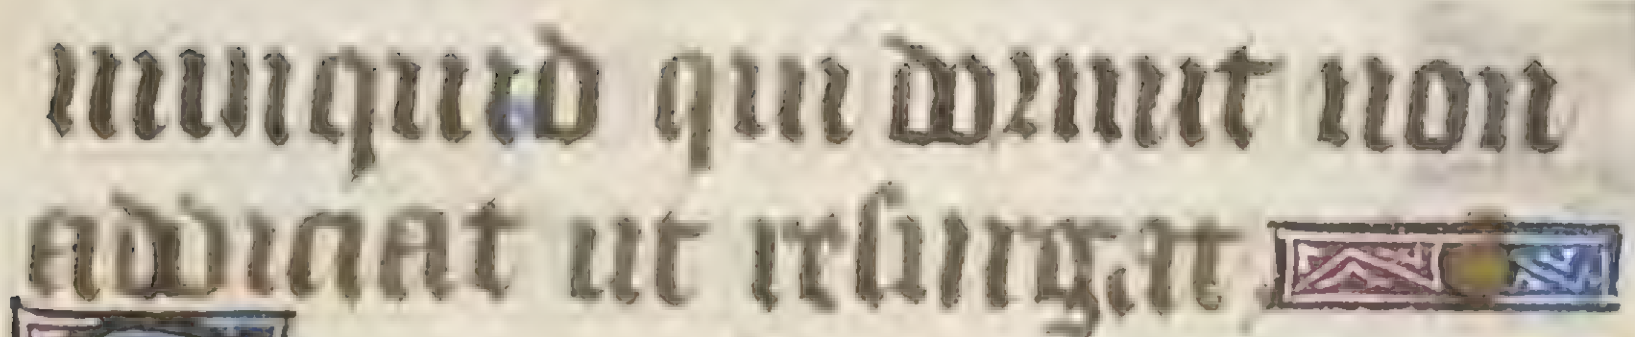 nunquid qui dormit non
addiciat ut resurgat